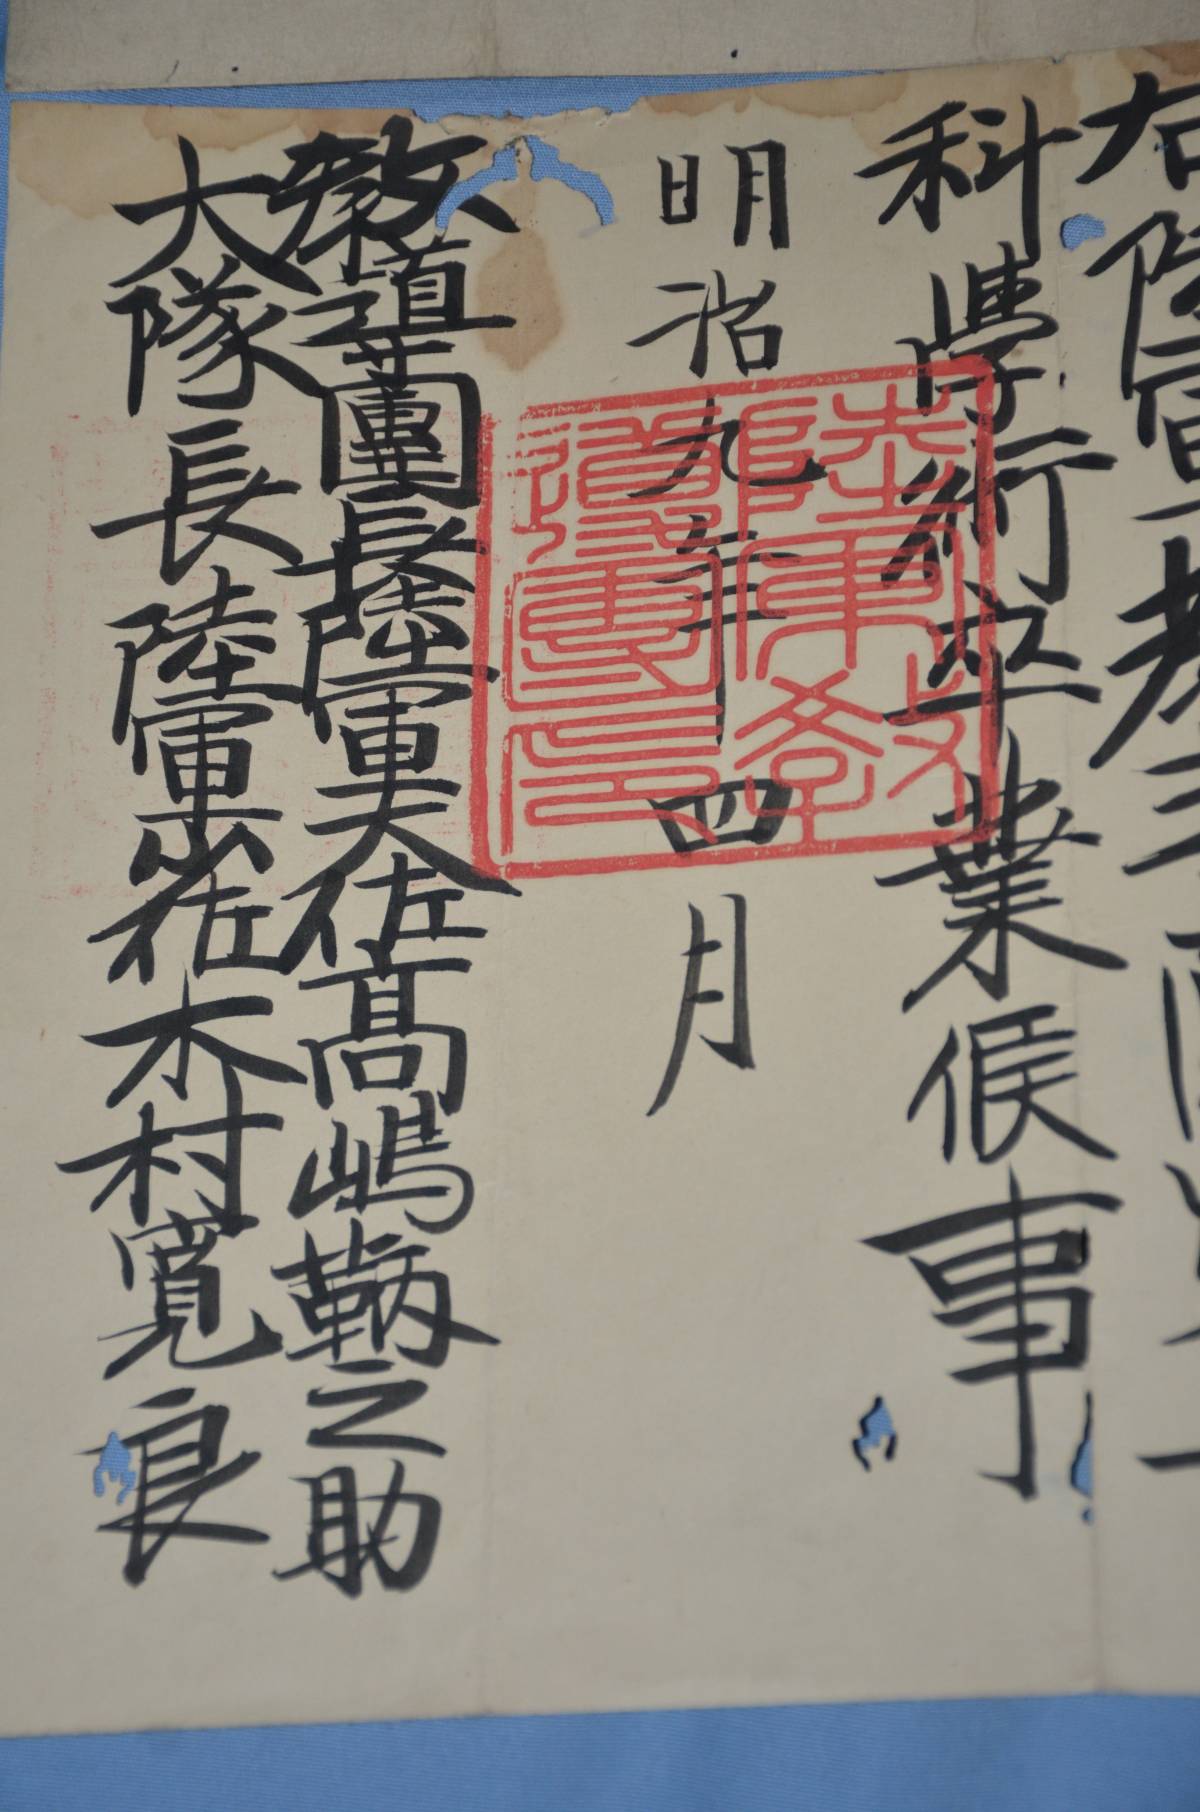 右陸軍
科學術卒業候事
明治九年四月
教導團長陸軍大佐高嶋鞆之助
大隊長陸軍少佐木村寛良
陸軍教
導團印